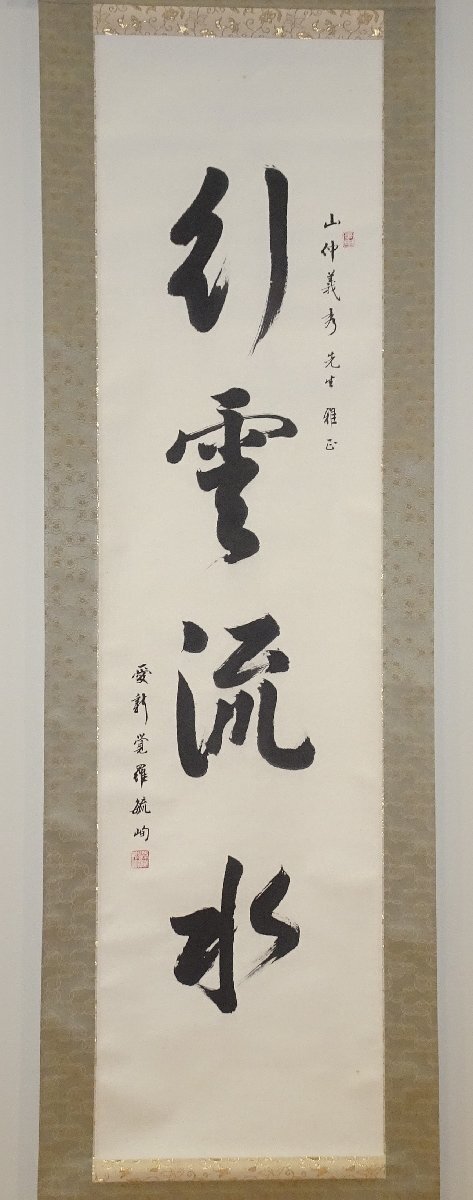 山仲義秀先生雅正
行雲流水
愛新覚羅毓峋